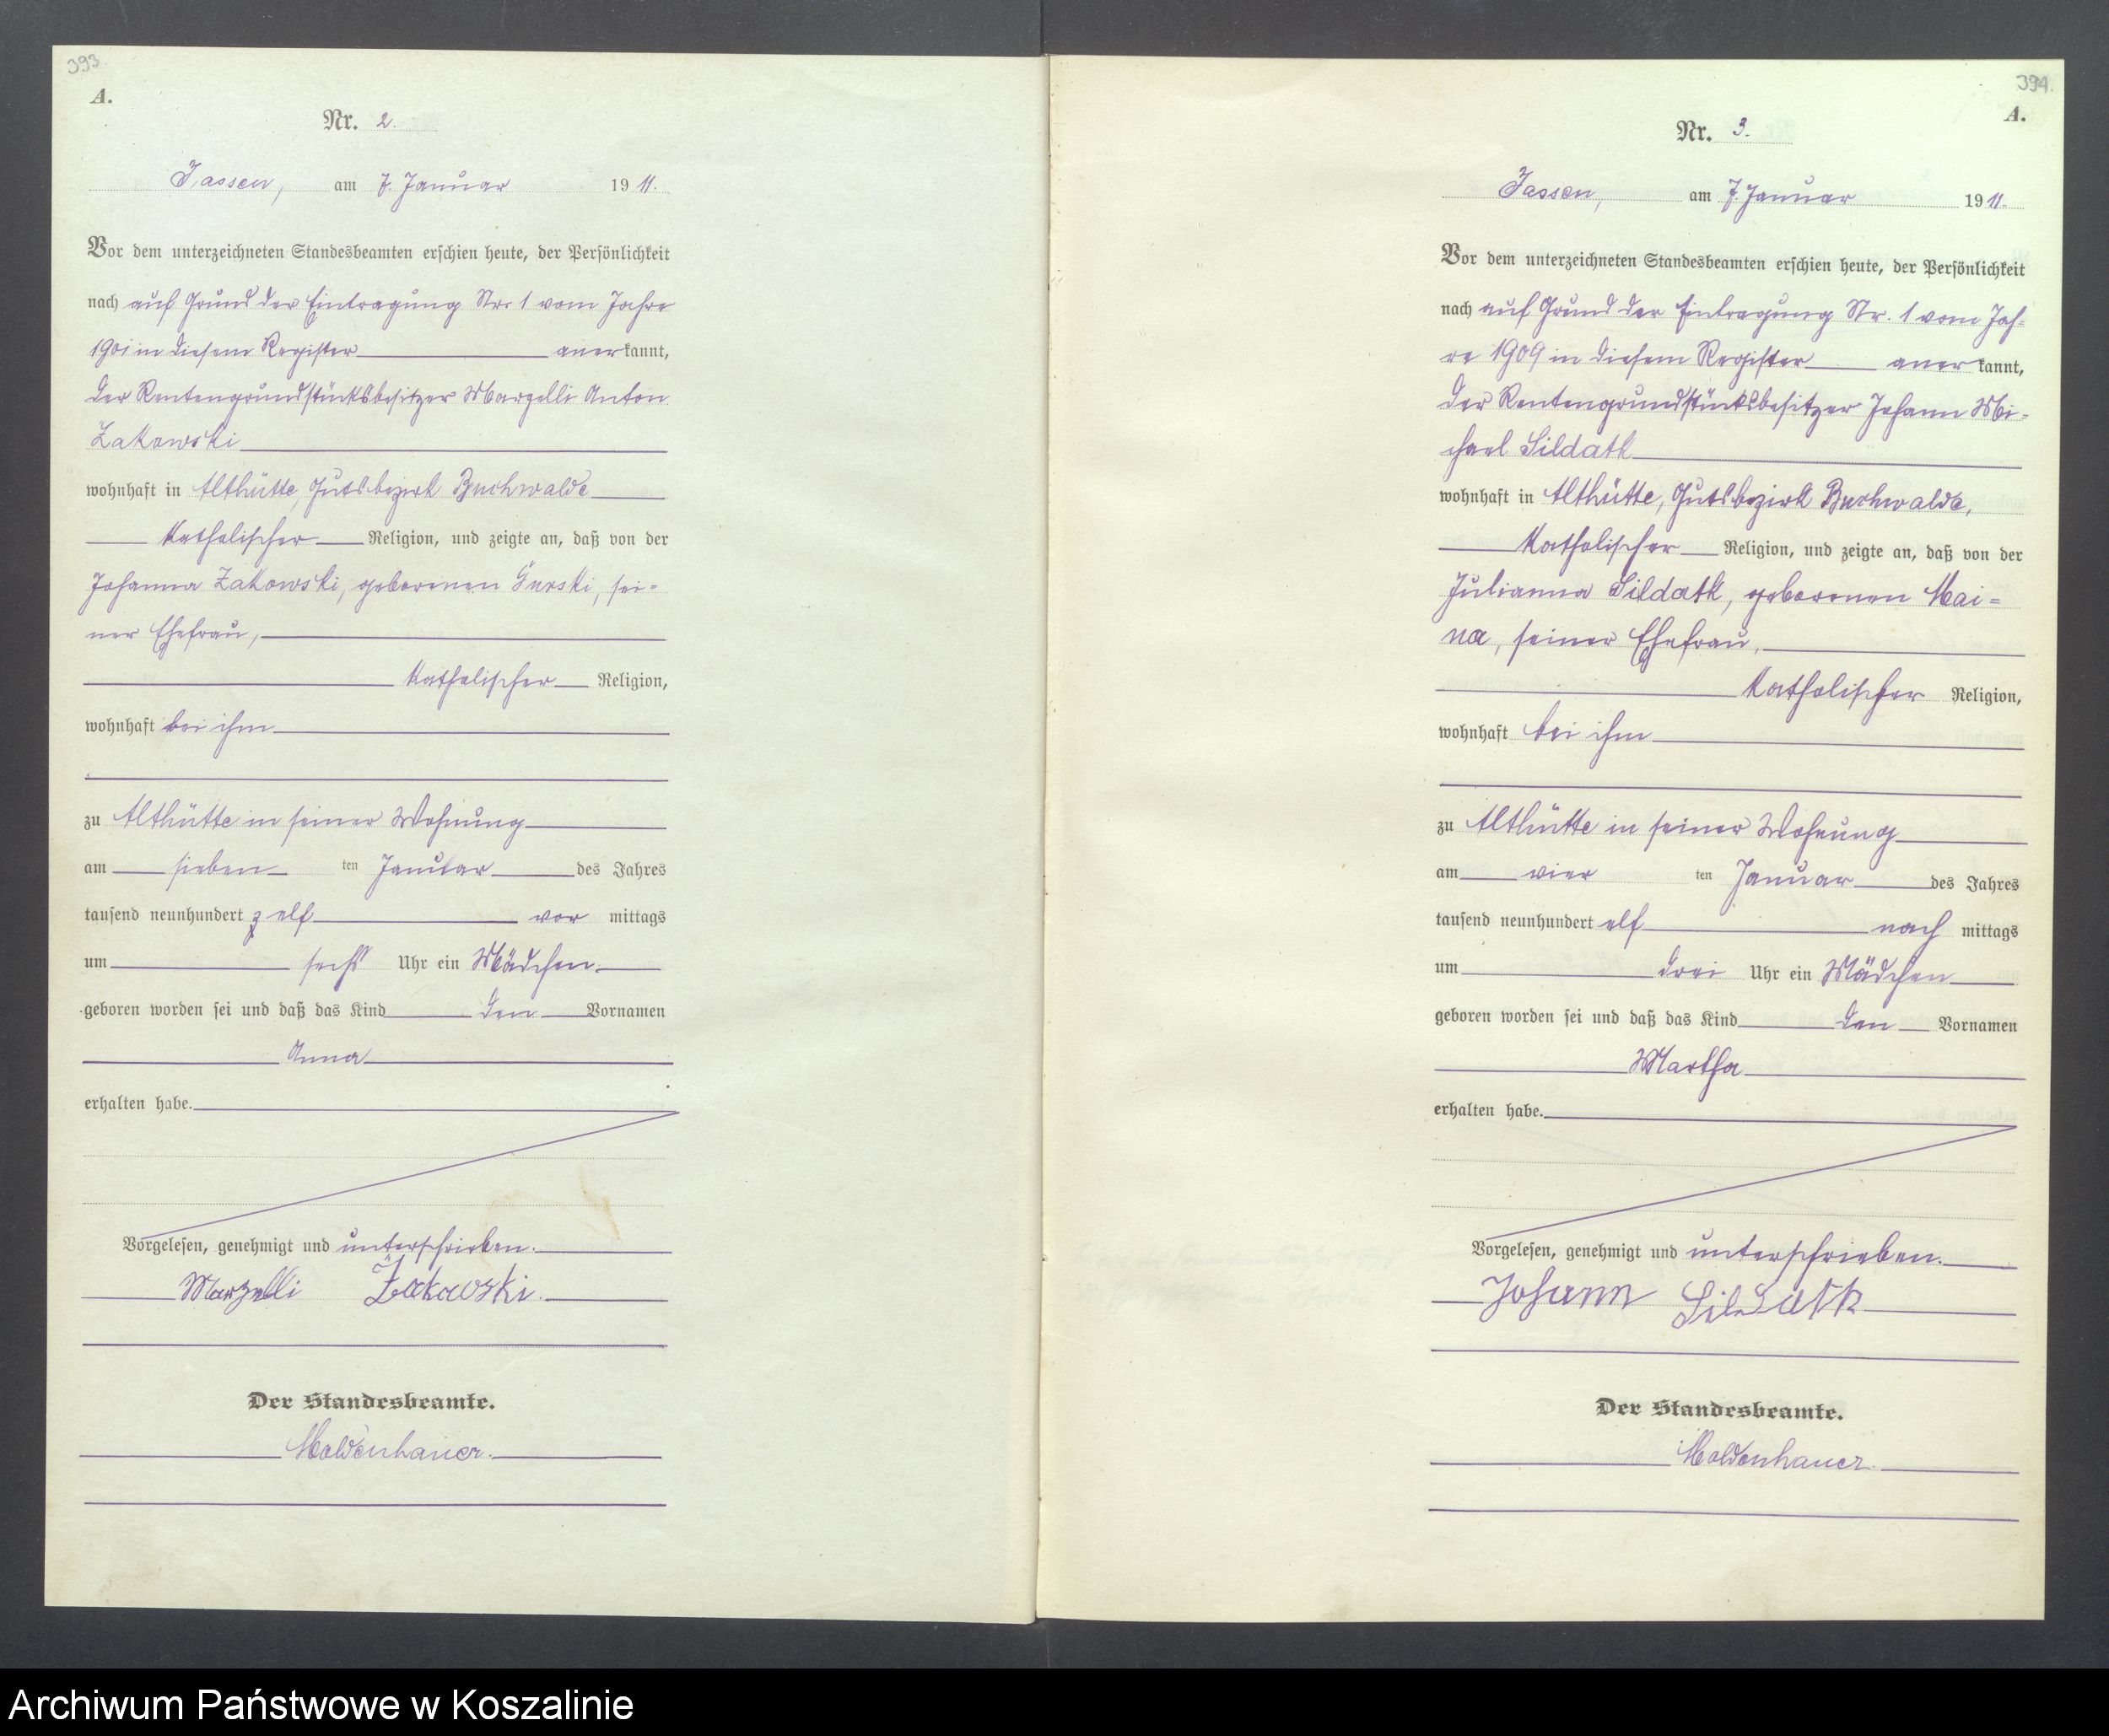 393.
A.
Nr. 2.
Jassen, am 7. Januar 1911.
Vor dem unterzeichneten Standesbeamten erschien heute, der Persönlichkeit
nach auf Grund der Eintragung Nr. 1 vom Jahre
in diesem Register anerkannt,
der Rentengrundstücksbesitzer Marzelli Anton
Zakowski
wohnhaft in Althütte, Gutsbezirk Buchwalde
katholischer Religion, und zeigte an, daß von der
Johanna Zakowski, geborenen Gurski, sei-
ner Ehefrau,
katholischer Religion,
wohnhaft bei ihm
zu Althütte in seiner Wohnung
am sieben ten Januar des Jahres
tausend neunhundert elf vor mittags
um sechs Uhr ein Mädchen
geboren worden sei und daß das Kind den Vornamen
Anna
erhalten habe.
Vorgelesen, genehmigt und unterschrieben.
Marzelli Żakowski.
Der Standesbeamte.
Moldenhauer.
394.
A.
Nr. 3.
Jassen, am 7. Januar 1911.
Vor dem unterzeichneten Standesbeamten erschien heute, der Persönlichkeit
nach auf Grund der Eintragung Nr. 1 vom Jah-
re 1909 in diesem Register anerkannt,
der Rentengrundstücksbesitzer Johann Mi-
chael Sildatk
wohnhaft in Althütte, Gutsbezirk Buchwalde,
katholischer Religion, und zeigte an, daß von der
Julianna Sildatk, geborenen Mai-
na, seiner Ehefrau,
katholischer Religion,
wohnhaft bei ihm
zu Althütte in seiner Wohnung
am vier ten Januar des Jahres
tausend neunhundert elf nach mittags
um drei Uhr ein Mädchen
geboren worden sei und daß das Kind den Vornamen
Martha
erhalten habe.
Vorgelesen, genehmigt und unterschrieben.
Johann Sildatk
Der Standesbeamte.
Moldenhauer.
Archiwum Państwowe w Koszalinie